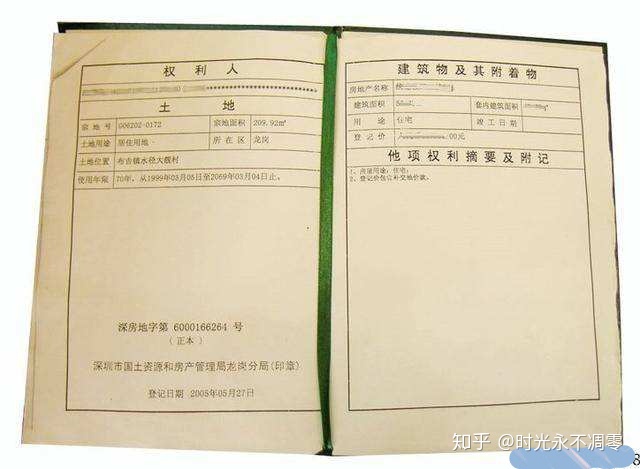 权利人
土地
宗地号 G06202-0172 宗地面积 209.92㎡
土地用途 居住用地 所在区 龙岗
土地位置 布吉镇水径大靓村
使用年限 70年，从1999年03月05日至2069年03月04日止。
深房地字第 6000166264 号
(正本)
深圳市国土资源和房产管理局龙岗分局(印章)
登记日期 2005年05月27日
建筑物及其附着物
房地产名称
建筑面积 套内建筑面积
用途 住宅 竣工日期
登记价 00元
他项权利摘要及附记
1、房屋用途：住宅；
2、登记价包含补交地价款。
知乎 @时光永不凋零
8